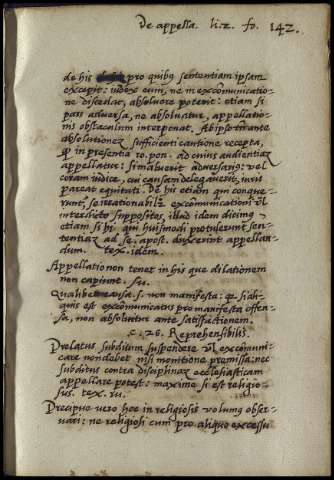 De appella. li. 2. fo. 142.
de his pro quibus sententiam ipsam
excepit: iudex eum, ne in excommunicatio-
ne discedat, absoluere poterit: etiam si
pars aduersa, ne absoluatur, appellatio-
nis obstaculum interponat. Ab ipso tn ante
absolutionem sufficienti cautione recepta,
quod in presentia ro. pon. ad cuius audientiam
appellatur: si maluerit aduersario: vel
coram iudice, cui causam delegauerit, iuris
pareat equitati. De his etiam qui conque-
runtur se irrationabiliter excommunicationi vel
interdicto suppositos, illud idem dicimus
etiam si hi qui huiusmodi protulerunt sen-
tentias ad se. apost. duxerint appellan-
dum. tex. idem.
Appellatio non tenet in his que dilationem
non capiunt. su.
Qualibet causa. s. non manifesta: quia si ali-
quis est excommunicatus pro manifesta offen-
sa, non absoluitur ante satisfactionem.
c. 26. Reprehensibilis.
Prelatus subditum suspendere vel excommuni-
care non debet nisi monitione premissa: nec
subditus contra disciplinam ecclesiasticam
appellare potest: maxime si est religio-
sus. tex. ru.
Precipue vero hoc in religiosis volumus obser-
uari: ne religiosi cum pro aliquo excessu